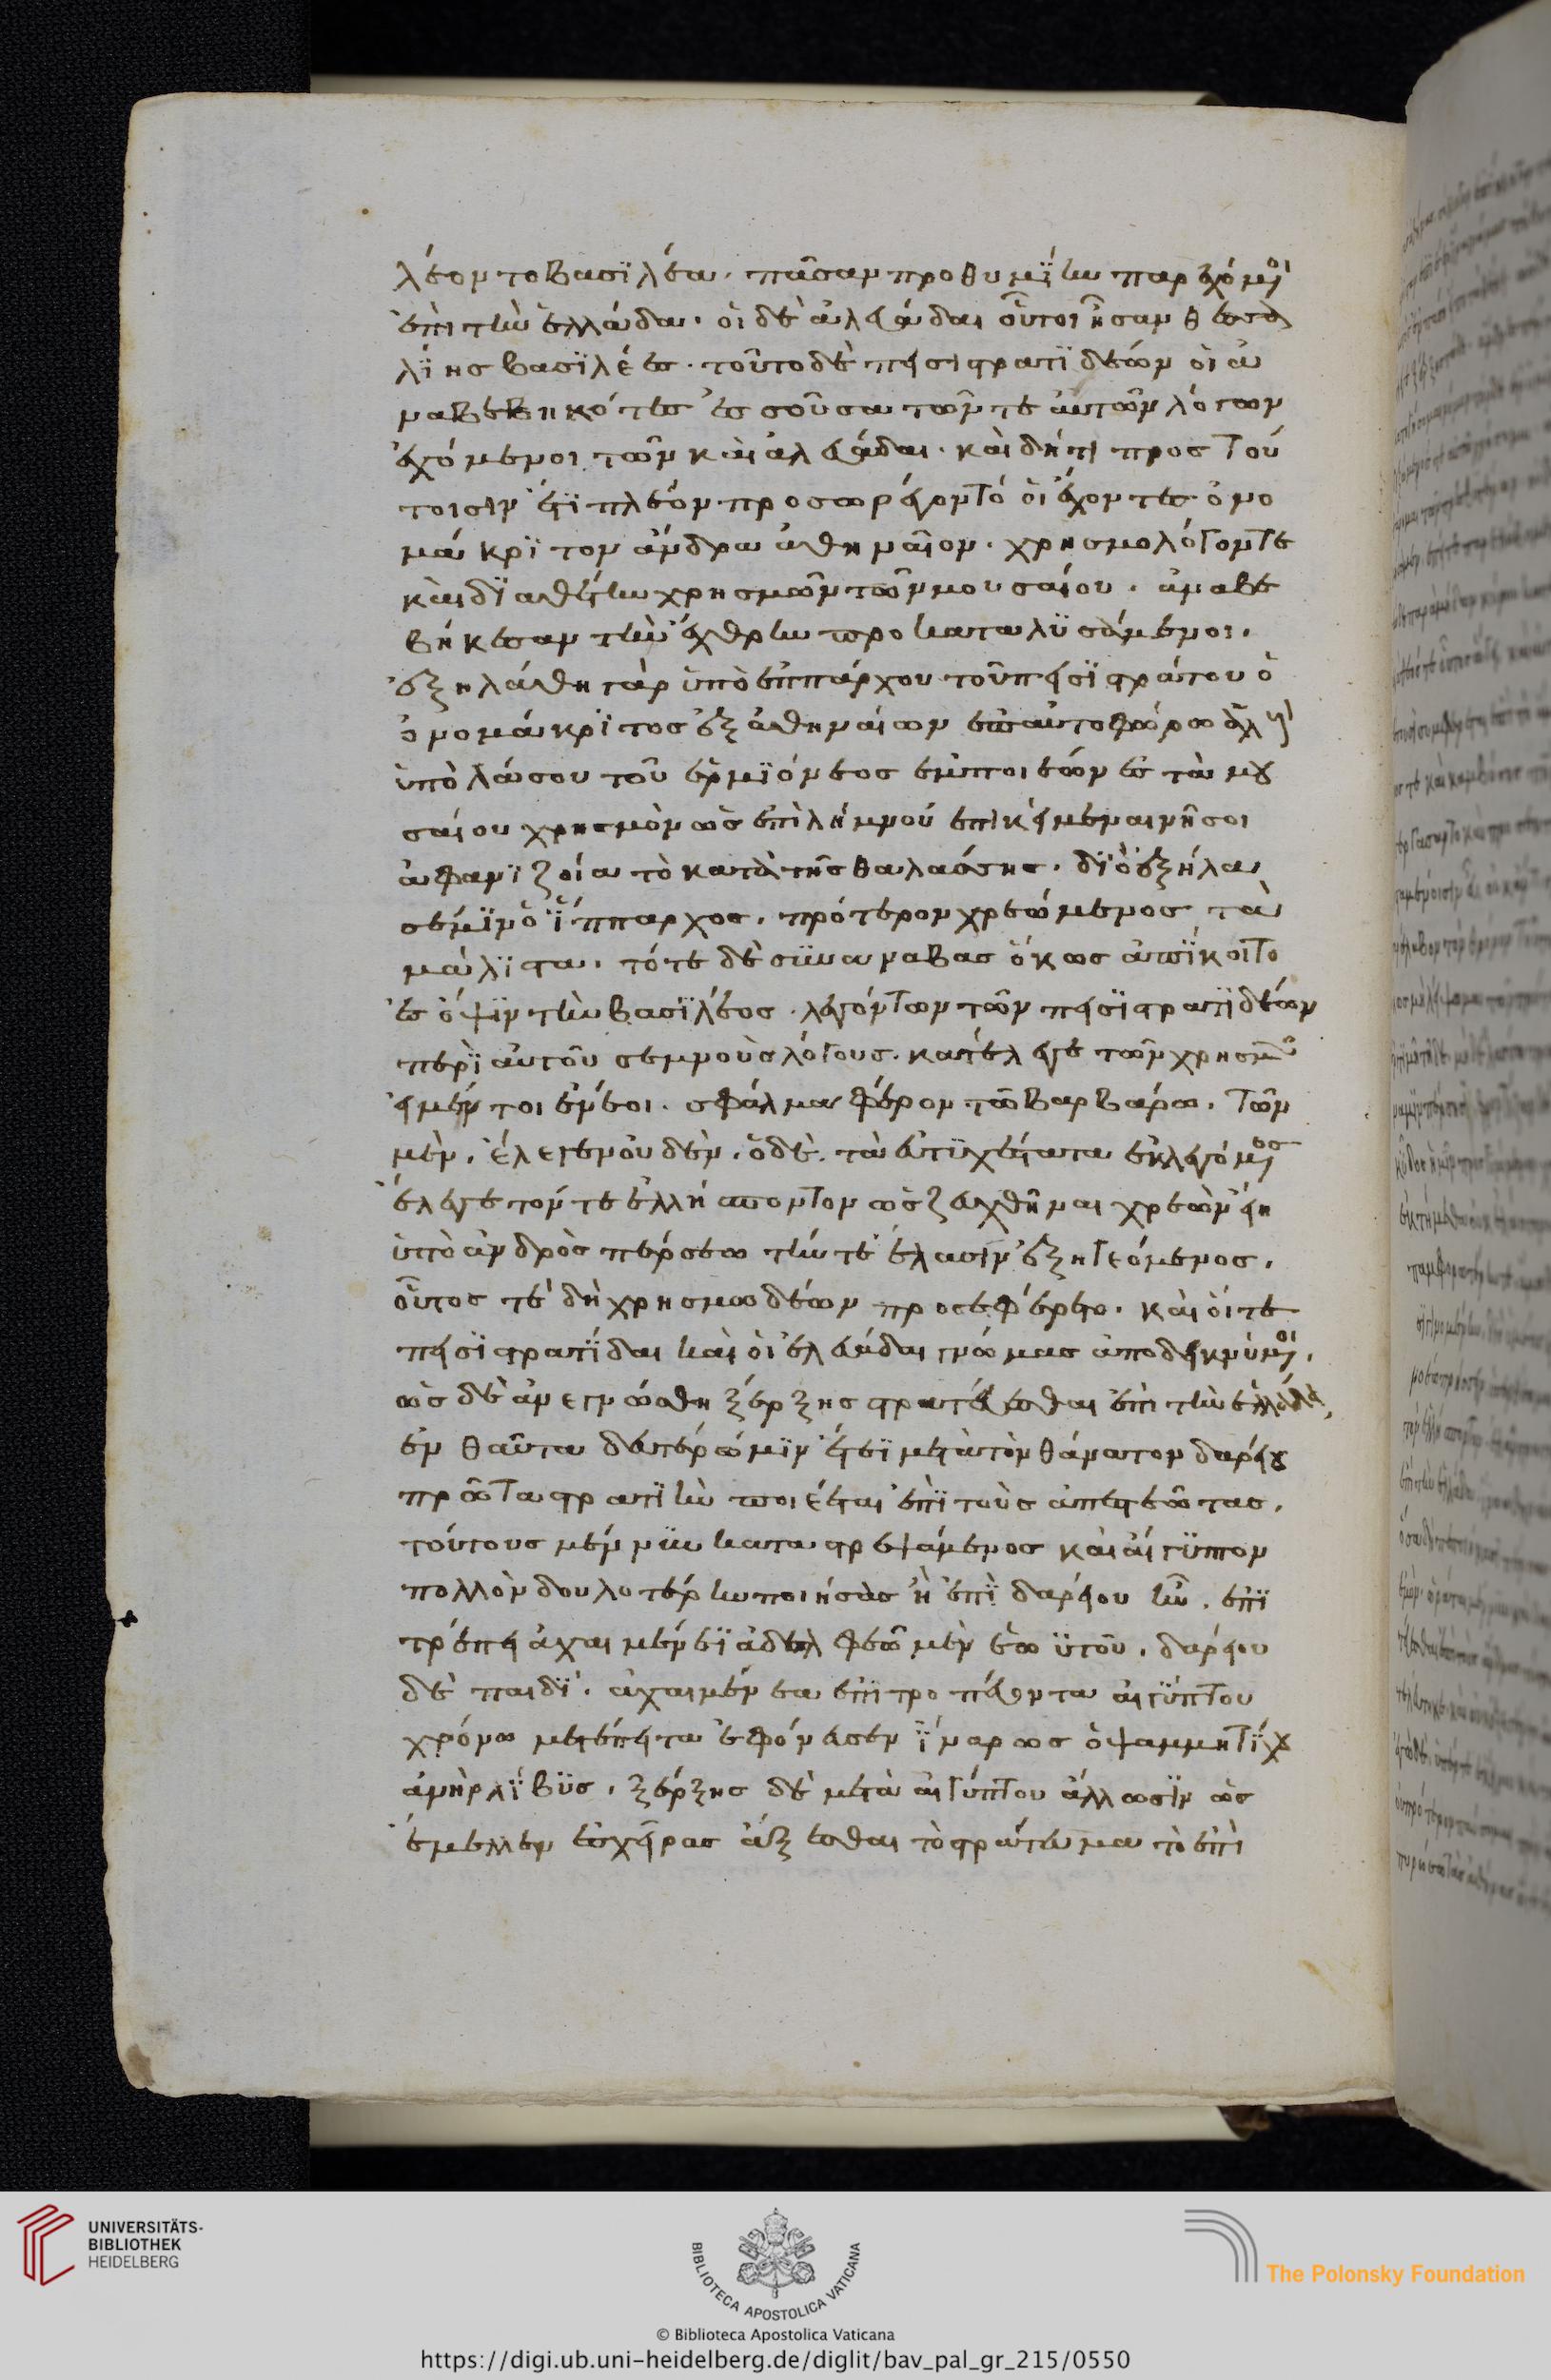 λέοντο βασϊλέα. πᾶσαν προθυμΐην παρεχόμ(εν)οι
ἐπὶ τὴν ἑλλάδα. οἱ δὲ ἀλευάδαι οὗτοι ἦσαν θεσσα
λΐης βασϊλέες. τοῦτο δὲ πεισιστρατϊδέων οἱ ἀ
ναβεβηκότες ἐς σοῦσα τῶν τε ἀυτῶν λόγων
ἐχόμενοι τῶν καὶ ἀλευάδαι. καὶ δή τι προς τού
τοισιν ἔτϊ πλέον προσωρέγοντό οἱ ἔχοντες ὀνο
μάκρϊτον ἄνδρα ἀθηναῖον. χρησμολόγον τε
καὶ δϊαθέτην χρησμῶν τῶν μουσαίου. ἀναβε
βήκεσαν τὴν ἔχθρην προκαταλϋσάμενοι.
ἐξηλάθη γὰρ ὑπὸ ἱππάρχου τοῦ πεισϊστράτου ὁ
ὀνομάκρϊτος ἐξ ἀθηναίων ἐπαυτοφώρω ἁλ
ὑπὸ λάσου τοῦ ἑρμϊόνεος ἐμποιέων ἐς τὰ μου
σαίου χρησμὸν ὡς ἐπὶ λήμνου ἐπικείμεναι νῆσοι
ἀφανϊζοίατο κατὰ τῆς θαλάσσης. δϊὸ ἐξήλα
σέ μϊν ὁ ἵππαρχος. πρότερον χρεώμενος τὰ
μάλϊστα. τότε δὲ σϋναναβας ὅκως ἀπΐκοιτο
ἐς ὄψϊν τὴν βασϊλέος. λεγόντων τῶν πεισϊστρατϊδέων
περὶ ἀυτοῦ σεμνοὺς λόγους. κατέλεγε τῶν χρησμῶν
εἰ μέν τοι ἐνέοι. σφάλμα φέρον τῶ βαρβάρω. τῶν
μὲν. ἔλεγεν ουδὲν. ὁ δὲ. τὰ ἐυτϋχέστατα ἐκλεγόμ(εν)ος
ἔλεγε τόν τε ἑλλήσποντον ὡς ζευχθῆναι χρεὼν εἴη
ὑπὸ ἀνδρὸς πέρσεω τήν τε ἔλασιν ἐξηγεόμενος.
οὗτός τε δὴ χρησμωδέων προσεφέρετο. καὶ ὅι τε
πεισϊστρατΐδαι καὶ οἱ ἀλευάδαι γνώμας ἀποδεικνύμ(εν)οι.
ὡς δὲ ἀνεγνώσθη ξέρξης στρατεύεσθαι ἐπὶ τὴν ἑλλάδα,
ἐνθαῦτα δευτέρω μϊν ἔτεϊ μετὰ τὸν θάνατον δαρείου
πρῶτα στρατϊὴν ποιέεται ἐπὶ τοὺς ἀπεστεῶτας.
τούτους μέν νϋν καταστρεψάμενος καὶ ἄιγϋπτον
πολλὸν δουλοτέρην ποιήσας ἢ ἐπὶ δαρείου ἦν. ἐπϊ
τρέπει ἀχαιμένεϊ ἀδελφεῶ μὲν ἑωϋτοῦ. δαρείου
δὲ παιδΐ. ἀχαιμένεα ἐπϊτροπεύοντα ἀιγΰπτου
χρόνω μετέπειτα ἐφόνευσεν ἴναρως ὁ ψαμμητΐχου
ἀνὴρ λΐβϋς. ξέρξης δὲ μετὰ ἀιγύπτου ἅλλωσϊν ὡς
ἔμελλεν ἐς χεῖρας ἄξεσθαι τὸ στράτευμα τὸ ἐπὶ
UNIVERSITÄTS-
BIBLIOTHEK
HEIDELBERG
BIBLIOTECA APOSTOLICA VATICANA
The Polonsky Foundation
© Biblioteca Apostolica Vaticana
https://digi.ub.uni-heidelberg.de/diglit/bav_pal_gr_215/0550